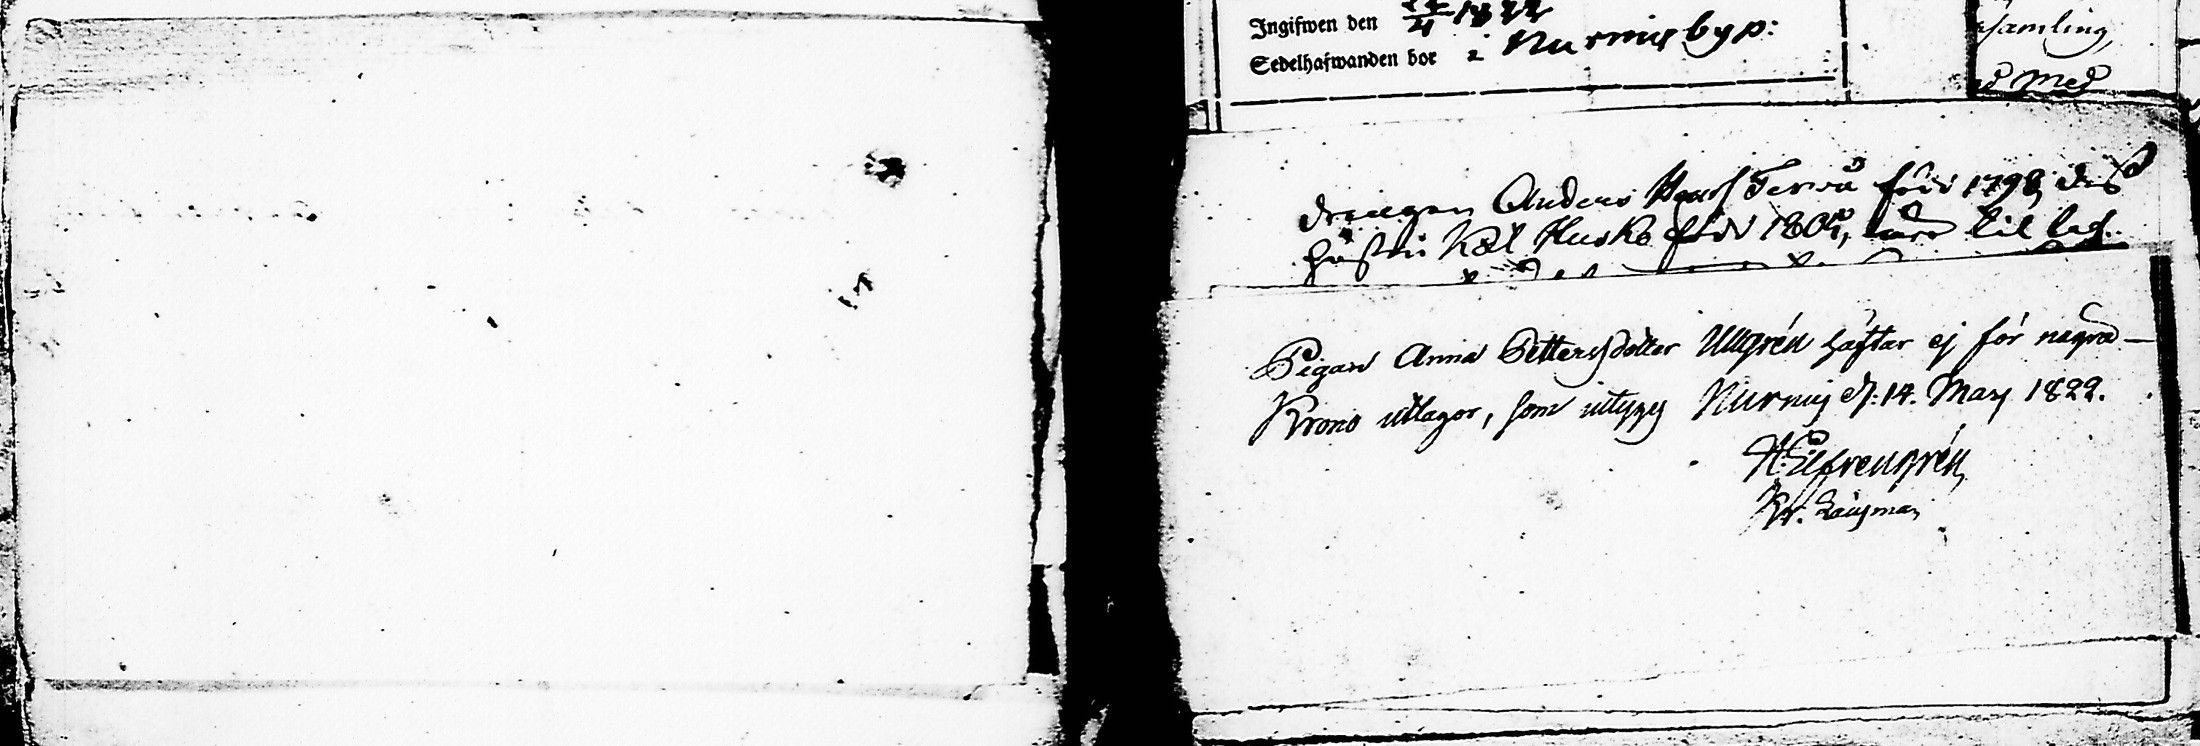 Ingifwen den 22/4 1822
Sedelhafwanden bor i Nurmis byn:
samling,
d Med
drengen Anders Terwa född 1798, dess
hustru Husko född 1804, till
Pigan Anna Pettersdotter Ullgrén häftar ej för några
Krono utlagor, som intygas Nurmis d: 14. Maij 1822.
H: Elfvengrén,
Kr. Länsman,